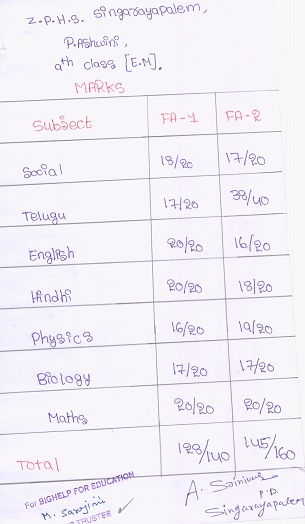 Z.P.H.S. Singarayapalem,
P.Ashwini,
9th class [E.M].
MARKS
Subject FA-1 FA-2
Social 18/20 17/20
Telugu 17/20 38/40
English 20/20 16/20
Hindhi 20/20 18/20
Physics 16/20 19/20
Biology 17/20 17/20
Maths 20/20 20/20
Total 128/140 145/160
For BIGHELP FOR EDUCATION
TRUSTEE
A. Srinivas
P.D.
Singarayapalem